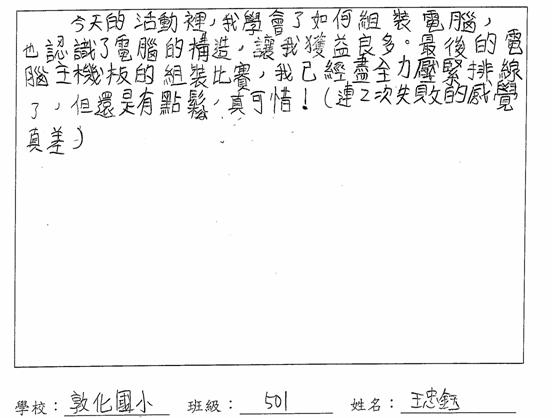 今天的活動裡，我學會了如何組裝電腦，
也認識了電腦的構造，讓我獲益良多。最後的電
腦主機板的組裝比賽，我已經盡全力壓緊排線
了，但還是有點鬆，真可惜！(連2次失敗的感覺
真差)
學校：敦化國小 班級：501 姓名：王忠鈺